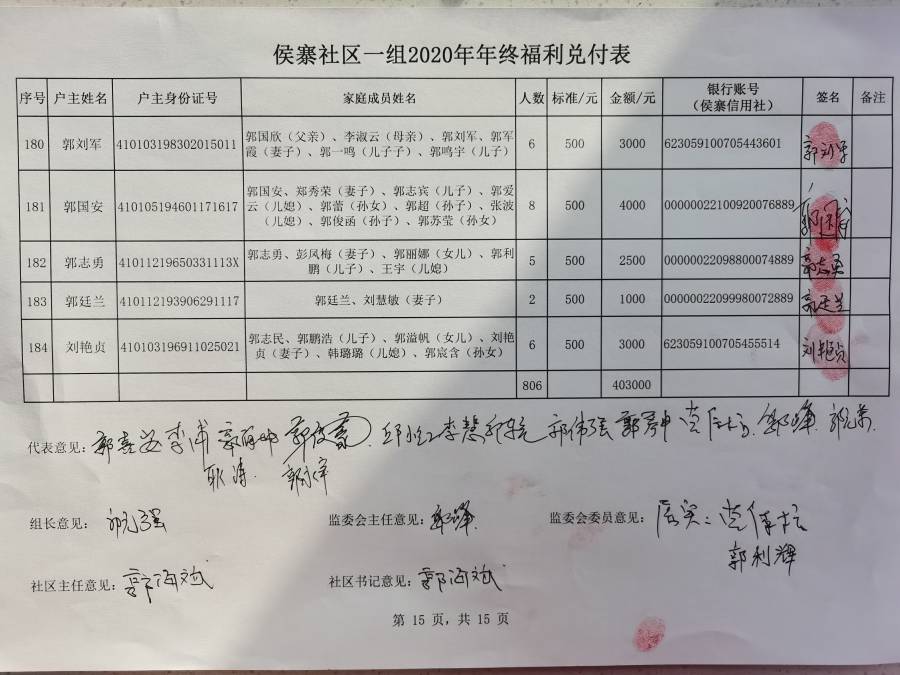 侯寨社区一组2020年年终福利兑付表
序号 户主姓名 户主身份证号 家庭成员姓名 人数 标准/元 金额/元 银行账号（侯寨信用社） 签名 备注
180 郭刘军 410103198302015011 郭国欣（父亲）、李淑云（母亲）、郭刘军、郭军霞（妻子）、郭一鸣（儿子子）、郭鸣宇（儿子） 6 500 3000 623059100705443601 郭刘军
181 郭国安 410105194601171617 郭国安、郑秀荣（妻子）、郭志宾（儿子）、郭爱云（儿媳）、郭蕾（孙女）、郭超（孙子）、张波（儿媳）、郭俊函（孙子）、郭苏莹（孙女） 8 500 4000 00000022100920076889
182 郭志勇 41011219650331113X 郭志勇、彭凤梅（妻子）、郭丽娜（女儿）、郭利鹏（儿子）、王宇（儿媳） 5 500 2500 00000022098800074889 郭志勇
183 郭廷兰 410112193906291117 郭廷兰、刘慧敏（妻子） 2 500 1000 00000022099980072889 郭廷兰
184 刘艳贞 410103196911025021 郭志民、郭鹏浩（儿子）、郭溢帆（女儿）、刘艳贞（妻子）、韩璐璐（儿媳）、郭宸含（孙女） 6 500 3000 623059100705455514 刘艳贞
806 403000
代表意见：
组长意见：
监委会主任意见：
监委会委员意见：
郭利辉
社区主任意见：
社区书记意见：
第 15 页，共 15 页